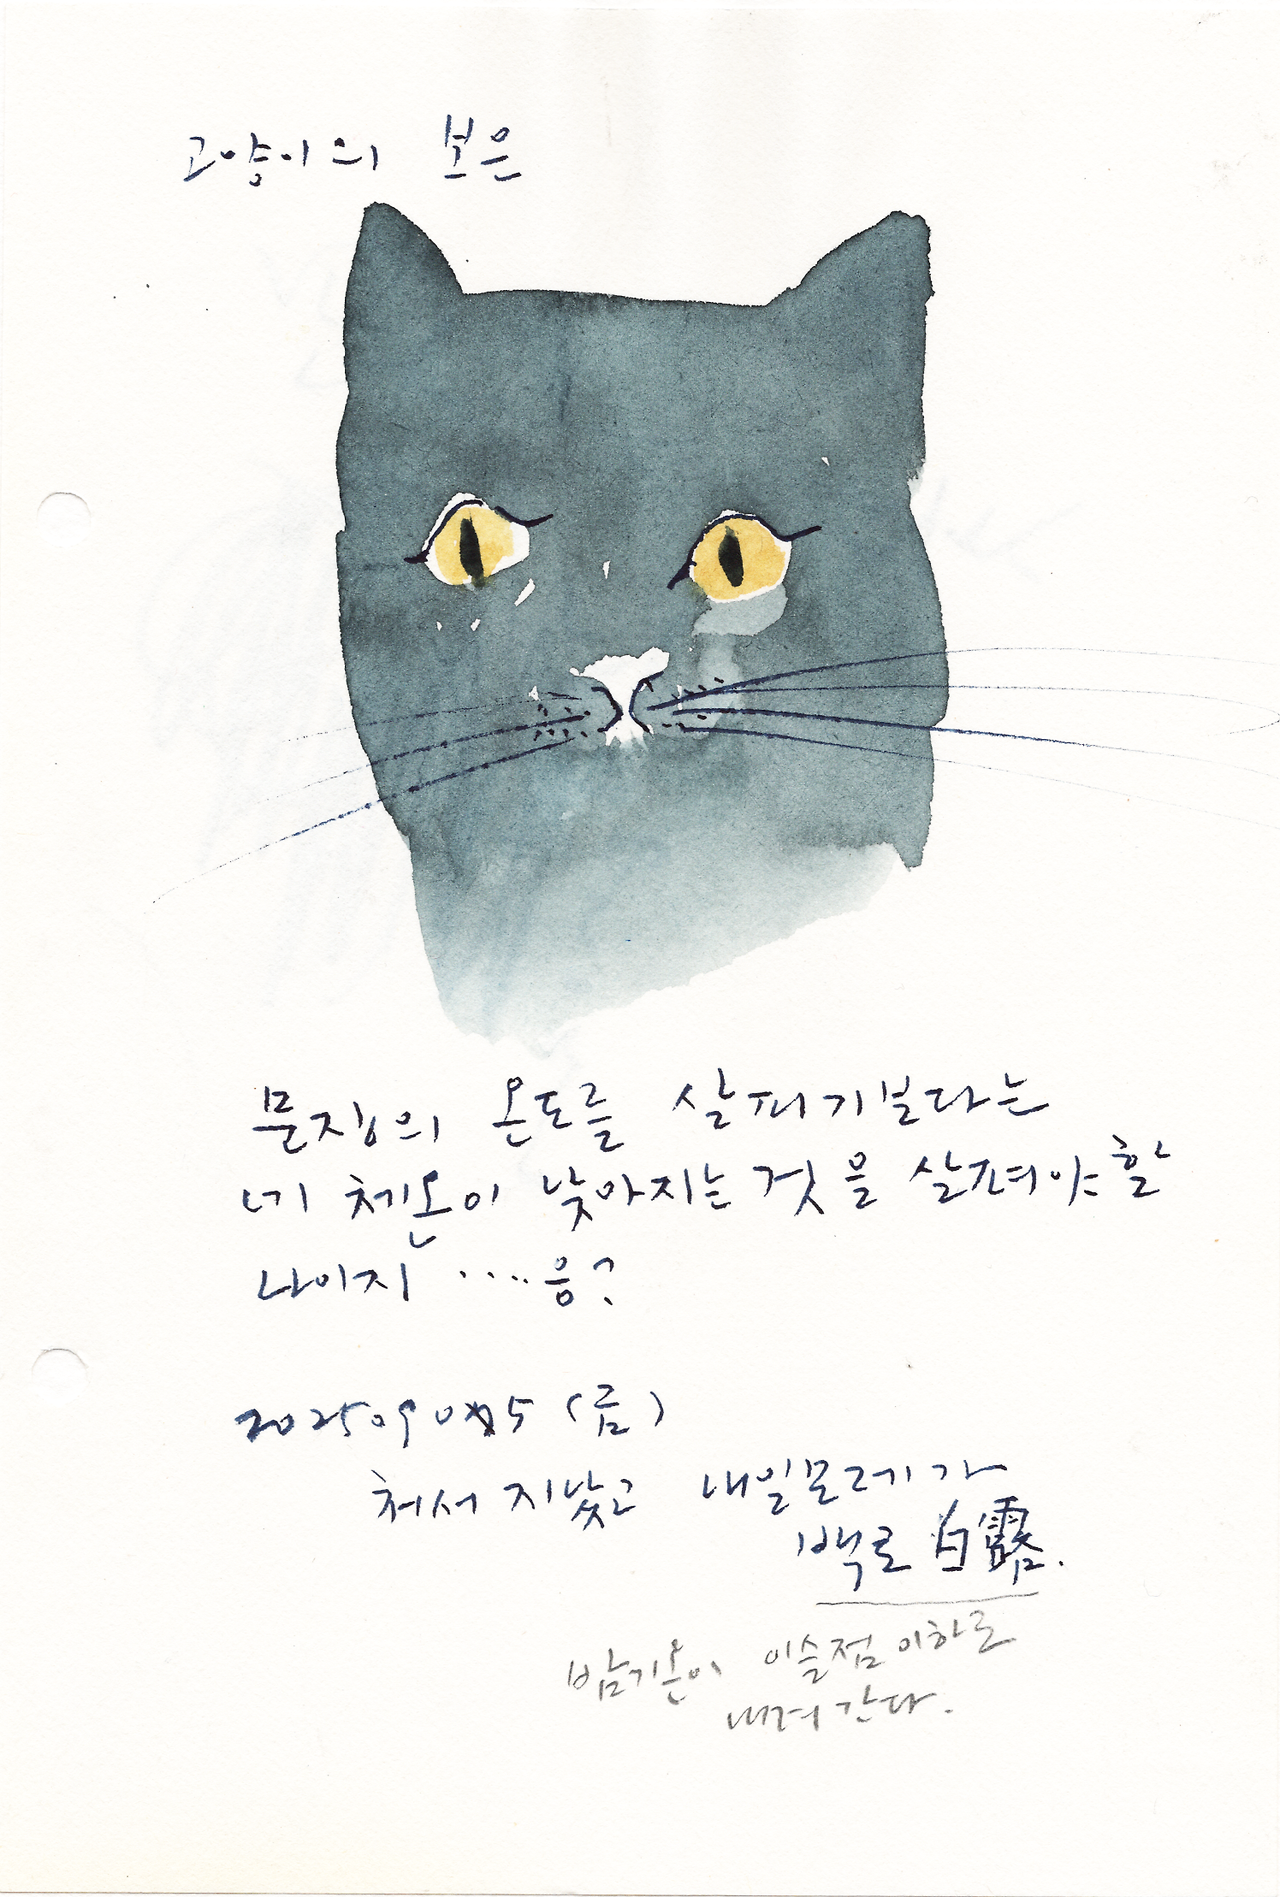 고양이의 보은
문장의 온도를 살피기보다는
네 체온이 낮아지는 것을 살펴야 할
나이지 ....응?
20250905 (금)
처서 지났고 내일모레가
백로 白露.
밤기온이 이슬점 이하로
내려간다.